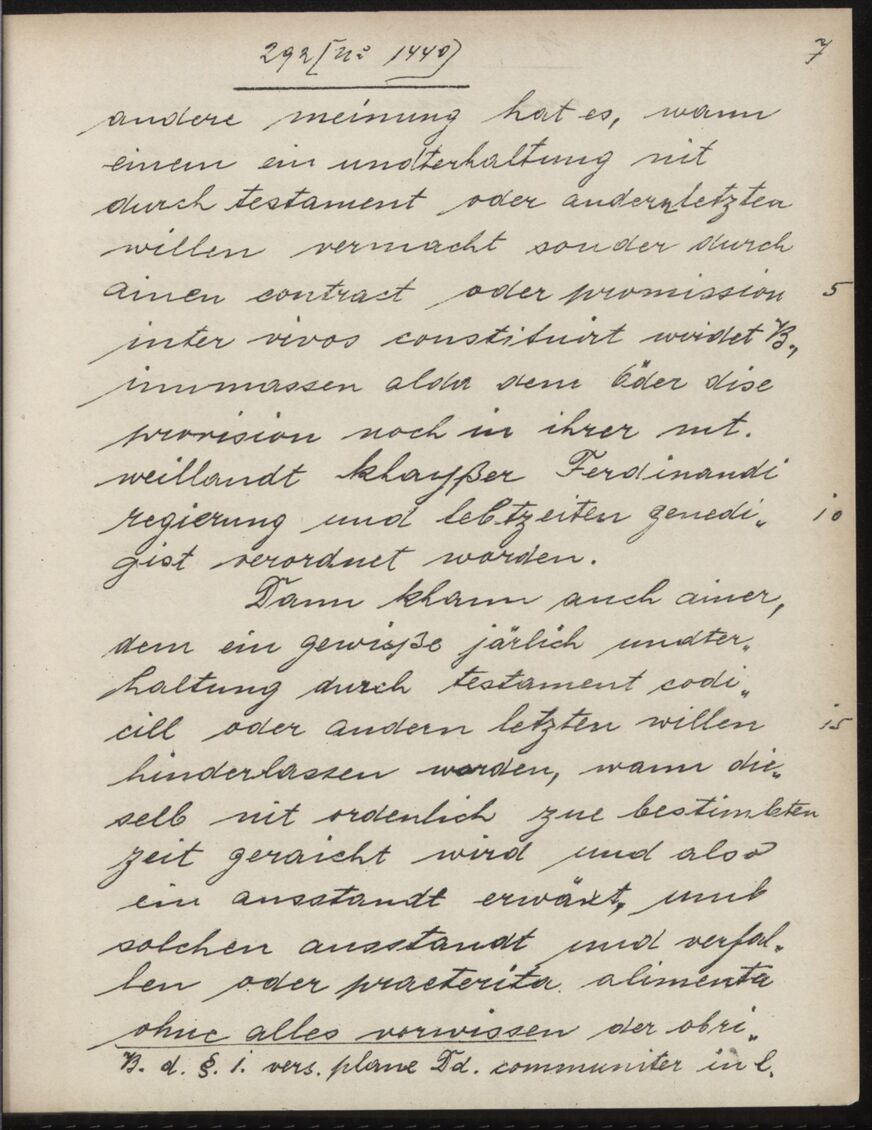 292 [No 1440] 7
andere meinung hat es, wann
einem ein undterhaltung nit
durch testament oder andern letzten
willen vermacht sonder durch
ainen contract oder promission 5
inter vivos constituirt wirdet B,
inmassen alda dem Eder dise
provision noch in ihrer mt.
weillandt khayßer Ferdinandi
regierung und lebtzeiten genedi„ 10
gist verordnet worden.
Dann khann auch ainer,
dem ein gewisße järlich undter„
haltung durch testament codi„
cill oder andern letzten willen 15
hinderlassen worden, wann die„
selb nit ordenlich zue bestimbten
zeit geraicht wird und also
ein ausstandt erwäxt, umb
solchen ausstandt und verfal„
len oder praeterita alimenta
ohne alles vorwissen der obri„
B. d. §. 1. vers. plane Dd. communiter in l.